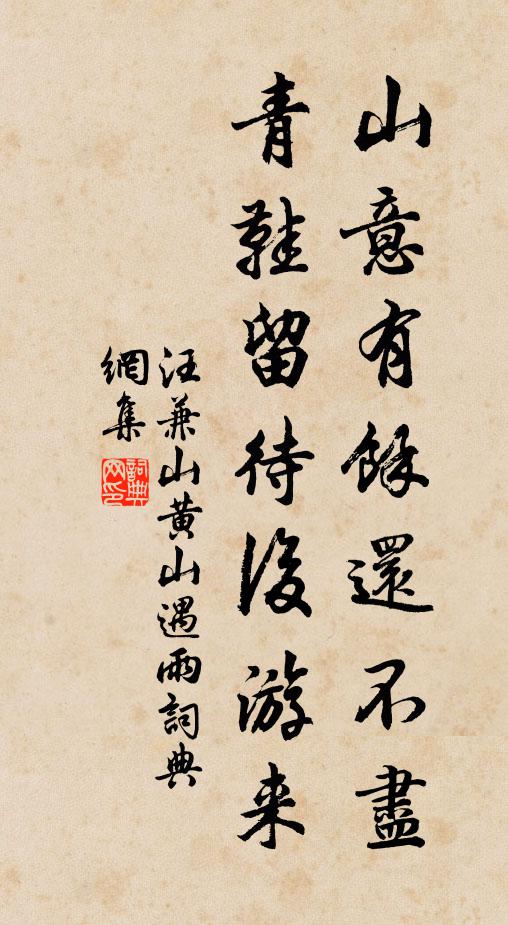 山意有餘還不盡
青鞋留待後游来
汪兼山黄山遇雨詞典
網集
詞典網印